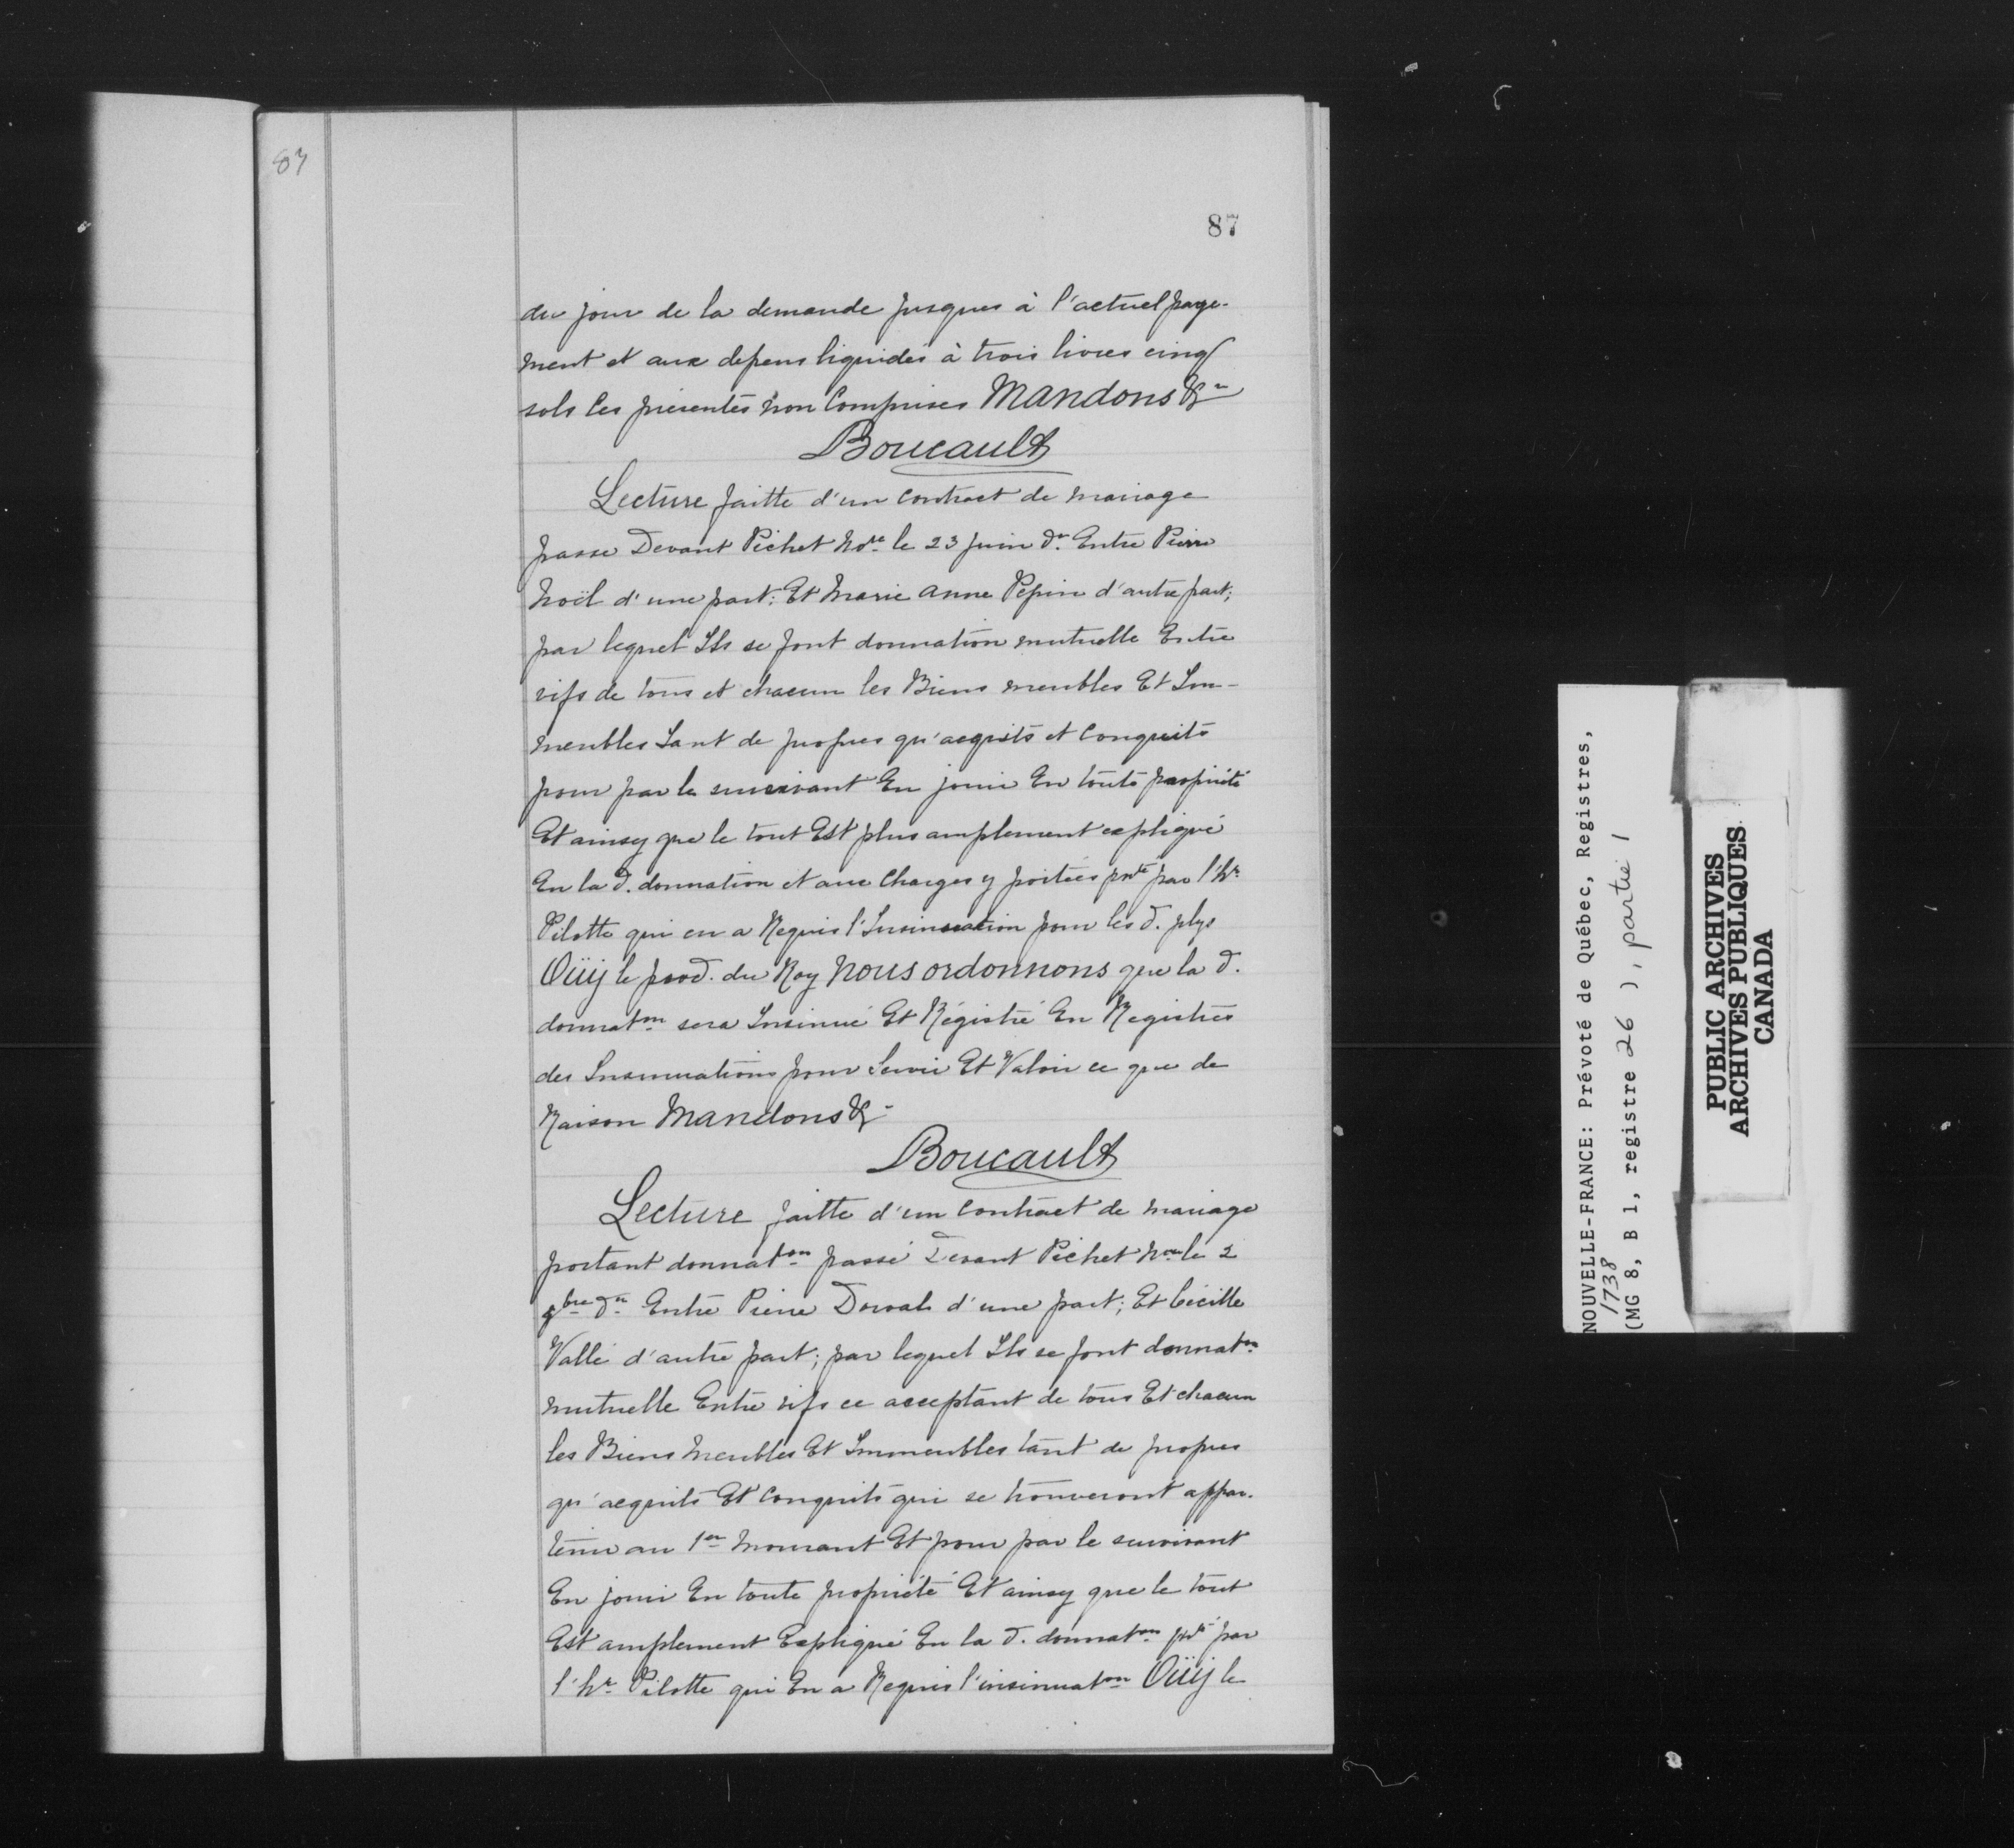 87
87
du jour de la demande jusques à l'actuel paye-
ment et aux depens liquidés à trois livres cinq
sols les présentes non Comprises Mandons &a
Boucault
Lecture faitte d'un contract de mariage
passe Devant Pichet Nore le 23 juin der Entre Pierre
Noël d'une part; Et Marie anne Pepin d'autre part;
par lequel Ils se font donnation mutuelle Entre
vifs de tous et chacun les Biens meubles Et Im-
meubles tant de propres qu'acquits et Conquits
pour par le survivant En jouir En toute propriété
Et ainsy que le tout Est plus amplement expliqué
En la d. donnation et aux Charges y portées pnté par l'hr
Pilotte qui en a Requis l'Insinuation pour les d. ptyes
Oüij le prod. du Roy Nous ordonnons que la d.
donnaton sera Insinué Et Régistré En Registres
des Insinuations pour Servir Et Valoir ce que de
Raison Mandons &
Boucault
Lecture faitte d'un Contract de mariage
portant donnaton passé Devant Pichet Nre le 2
9bre der Entre Pierre Dorval d'une part; Et Cécille
Vallé d'autre part; par lequel Ils se font donnaton
mutuelle Entre vifs ce acceptant de tous Et chacun
les Biens Meubles Et Immeubles tant de propres
qu'acquits Et Conquits qui se trouveront appar-
tenir au 1er Mourant Et pour par le survivant
En jouir En toute propriété Et ainsy que le tout
Est amplement Expliqué En la d. donnaton pnté par
l'hr Pilotte qui En a Requis l'insinuaton Oüij le
NOUVELLE-FRANCE: Prévoté de Québec, Registres,
1738
(MG 8, B 1, registre 26 ), partie 1
PUBLIC ARCHIVES
ARCHIVES PUBLIQUES
CANADA